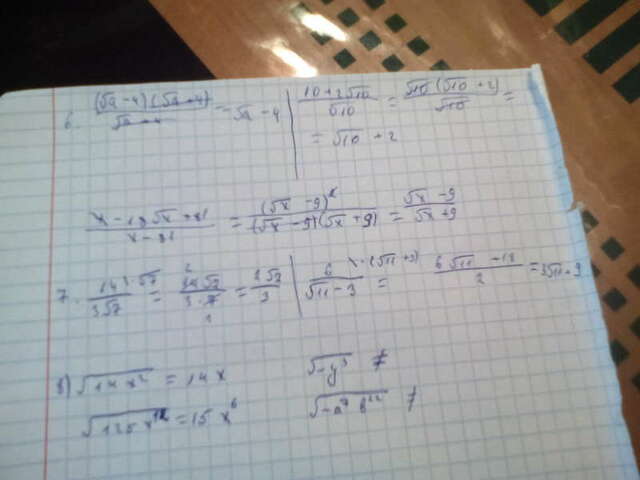 6. (√a - 4)(√a + 4) / √a + 4 = √a - 4 | 10 + 2√10 / √10 = √10 (√10 + 2) / √10 =
= √10 + 2
x - 18√x + 81 / x - 81 = (√x - 9)² / (√x - 9)(√x + 9) = √x - 9 / √x + 9
7. 14·√7 / 3√7 = / 3·7 = 2√7 / 3 | 6 / √11 - 3 = 6√11 / 2 = 3√11 + 9
8) √14x² = 14x √-y³ ≠
√125x¹² = 15x⁶ √-a b²² ≠